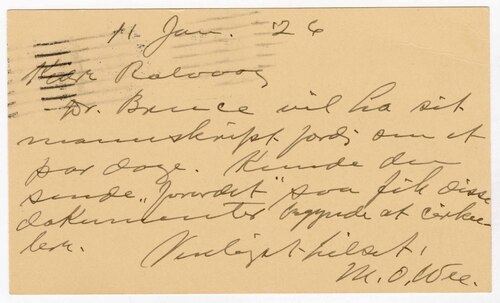 11 Jan. '26
Kjære Rolvaag
Dr. Bruce vil ha sit
manuskript færdi om et
par dage. Kunde du
sende "forordet" saa fik disse
dokumenter begynde at cirku-
lere.
Venligst hilset,
M. O. Wee.